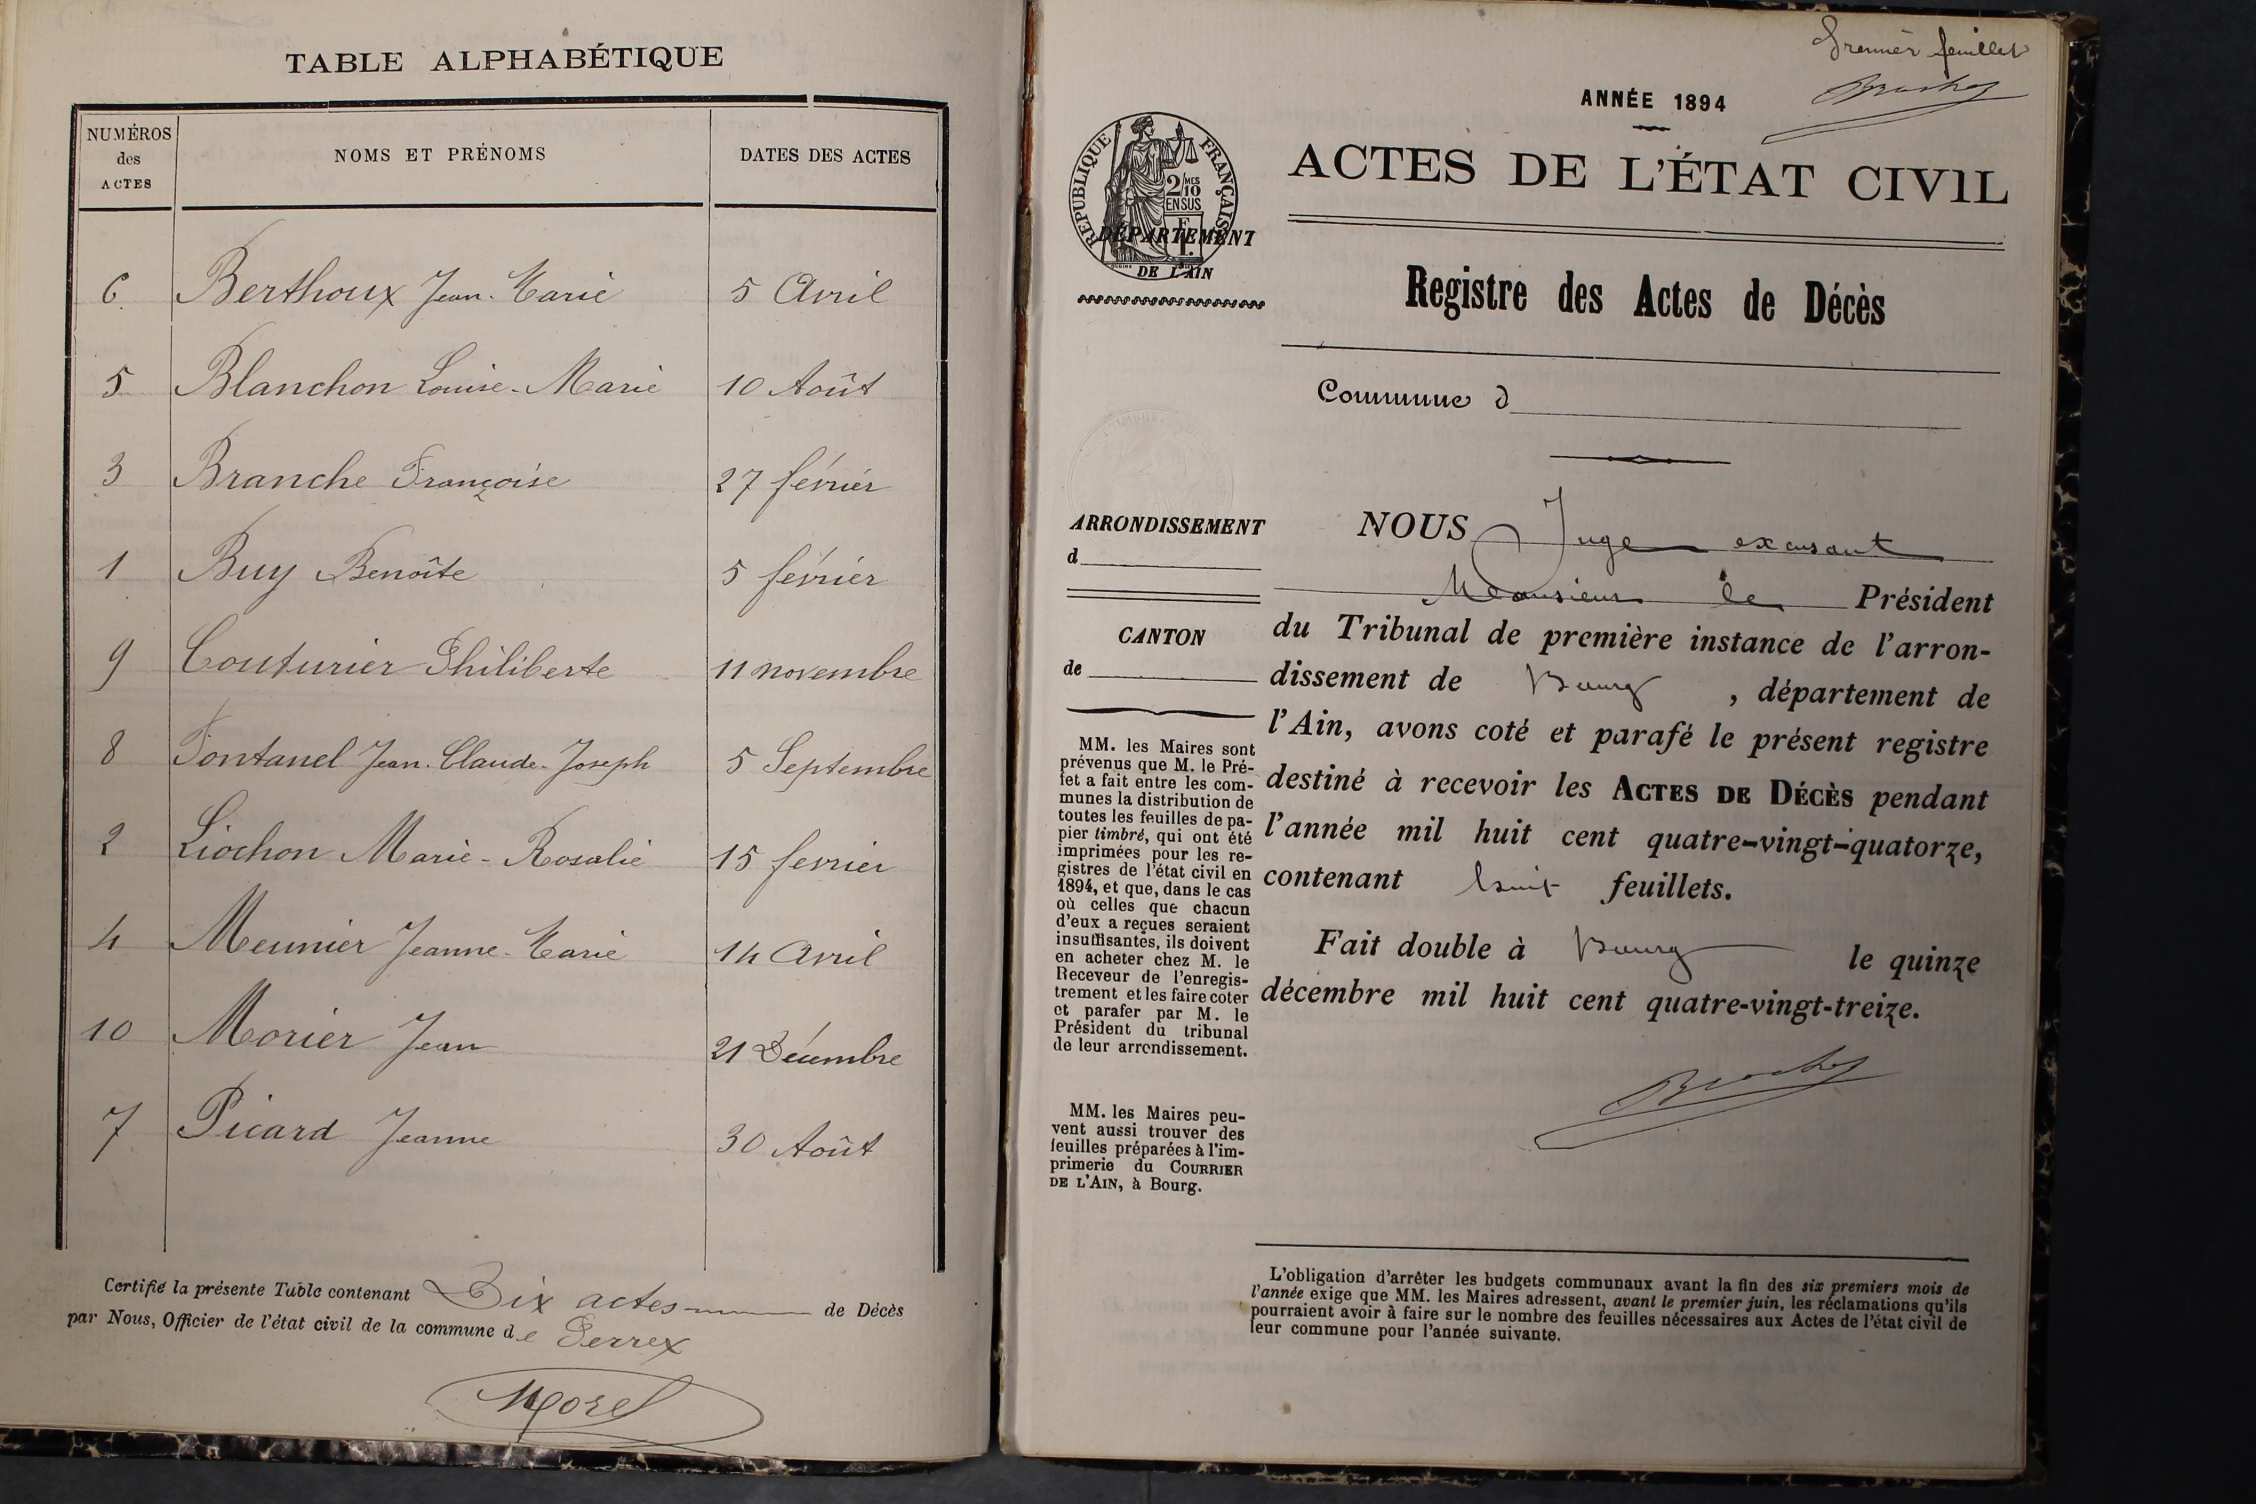 TABLE ALPHABÉTIQUE
NUMÉROS des ACTES
NOMS ET PRÉNOMS
DATES DES ACTES
6 Berthoux Jean-Marie 5 Avril
5 Blanchon Louise-Marie 10 Août
3 Branche Françoise 27 février
1 Buy Benoîte 5 février
9 Couturier Philiberte 11 novembre
8 Fontanel Jean-Claude-Joseph 5 Septembre
2 Liochon Marie-Rosalie 15 fevrier
4 Meunier Jeanne-Marie 14 Avril
10 Morier Jean 21 Décembre
7 Picard Jeanne 30 Août
Certifié la présente Table contenant Dix actes de Décès
par Nous, Officier de l'état civil de la commune de Perrex
Morel
Premier feuillet
ANNÉE 1894
RÉPUBLIQUE FRANÇAISE
2/10 MES
EN SUS
DÉPARTEMENT
DE L'AIN
ACTES DE L'ÉTAT CIVIL
Registre des Actes de Décès
Commune d
ARRONDISSEMENT
d
CANTON
de
MM. les Maires sont
prévenus que M. le Pré-
fet a fait entre les com-
munes la distribution de
toutes les feuilles de pa-
pier timbré, qui ont été
imprimées pour les re-
gistres de l'état civil en
1894, et que, dans le cas
où celles que chacun
d'eux a reçues seraient
insuffisantes, ils doivent
en acheter chez M. le
Receveur de l'enregis-
trement et les faire coter
et parafer par M. le
Président du tribunal
de leur arrondissement.
MM. les Maires peu-
vent aussi trouver des
feuilles préparées à l'im-
primerie du COURRIER
DE L'AIN, à Bourg.
NOUS Juge excusant
Monsieur le Président
du Tribunal de première instance de l'arron-
dissement de Bourg, département de
l'Ain, avons coté et parafé le présent registre
destiné à recevoir les ACTES DE DÉCÈS pendant
l'année mil huit cent quatre-vingt-quatorze,
contenant huit feuillets.
Fait double à Bourg le quinze
décembre mil huit cent quatre-vingt-treize.
L'obligation d'arrêter les budgets communaux avant la fin des six premiers mois de
l'année exige que MM. les Maires adressent, avant le premier juin, les réclamations qu'ils
pourraient avoir à faire sur le nombre des feuilles nécessaires aux Actes de l'état civil de
leur commune pour l'année suivante.